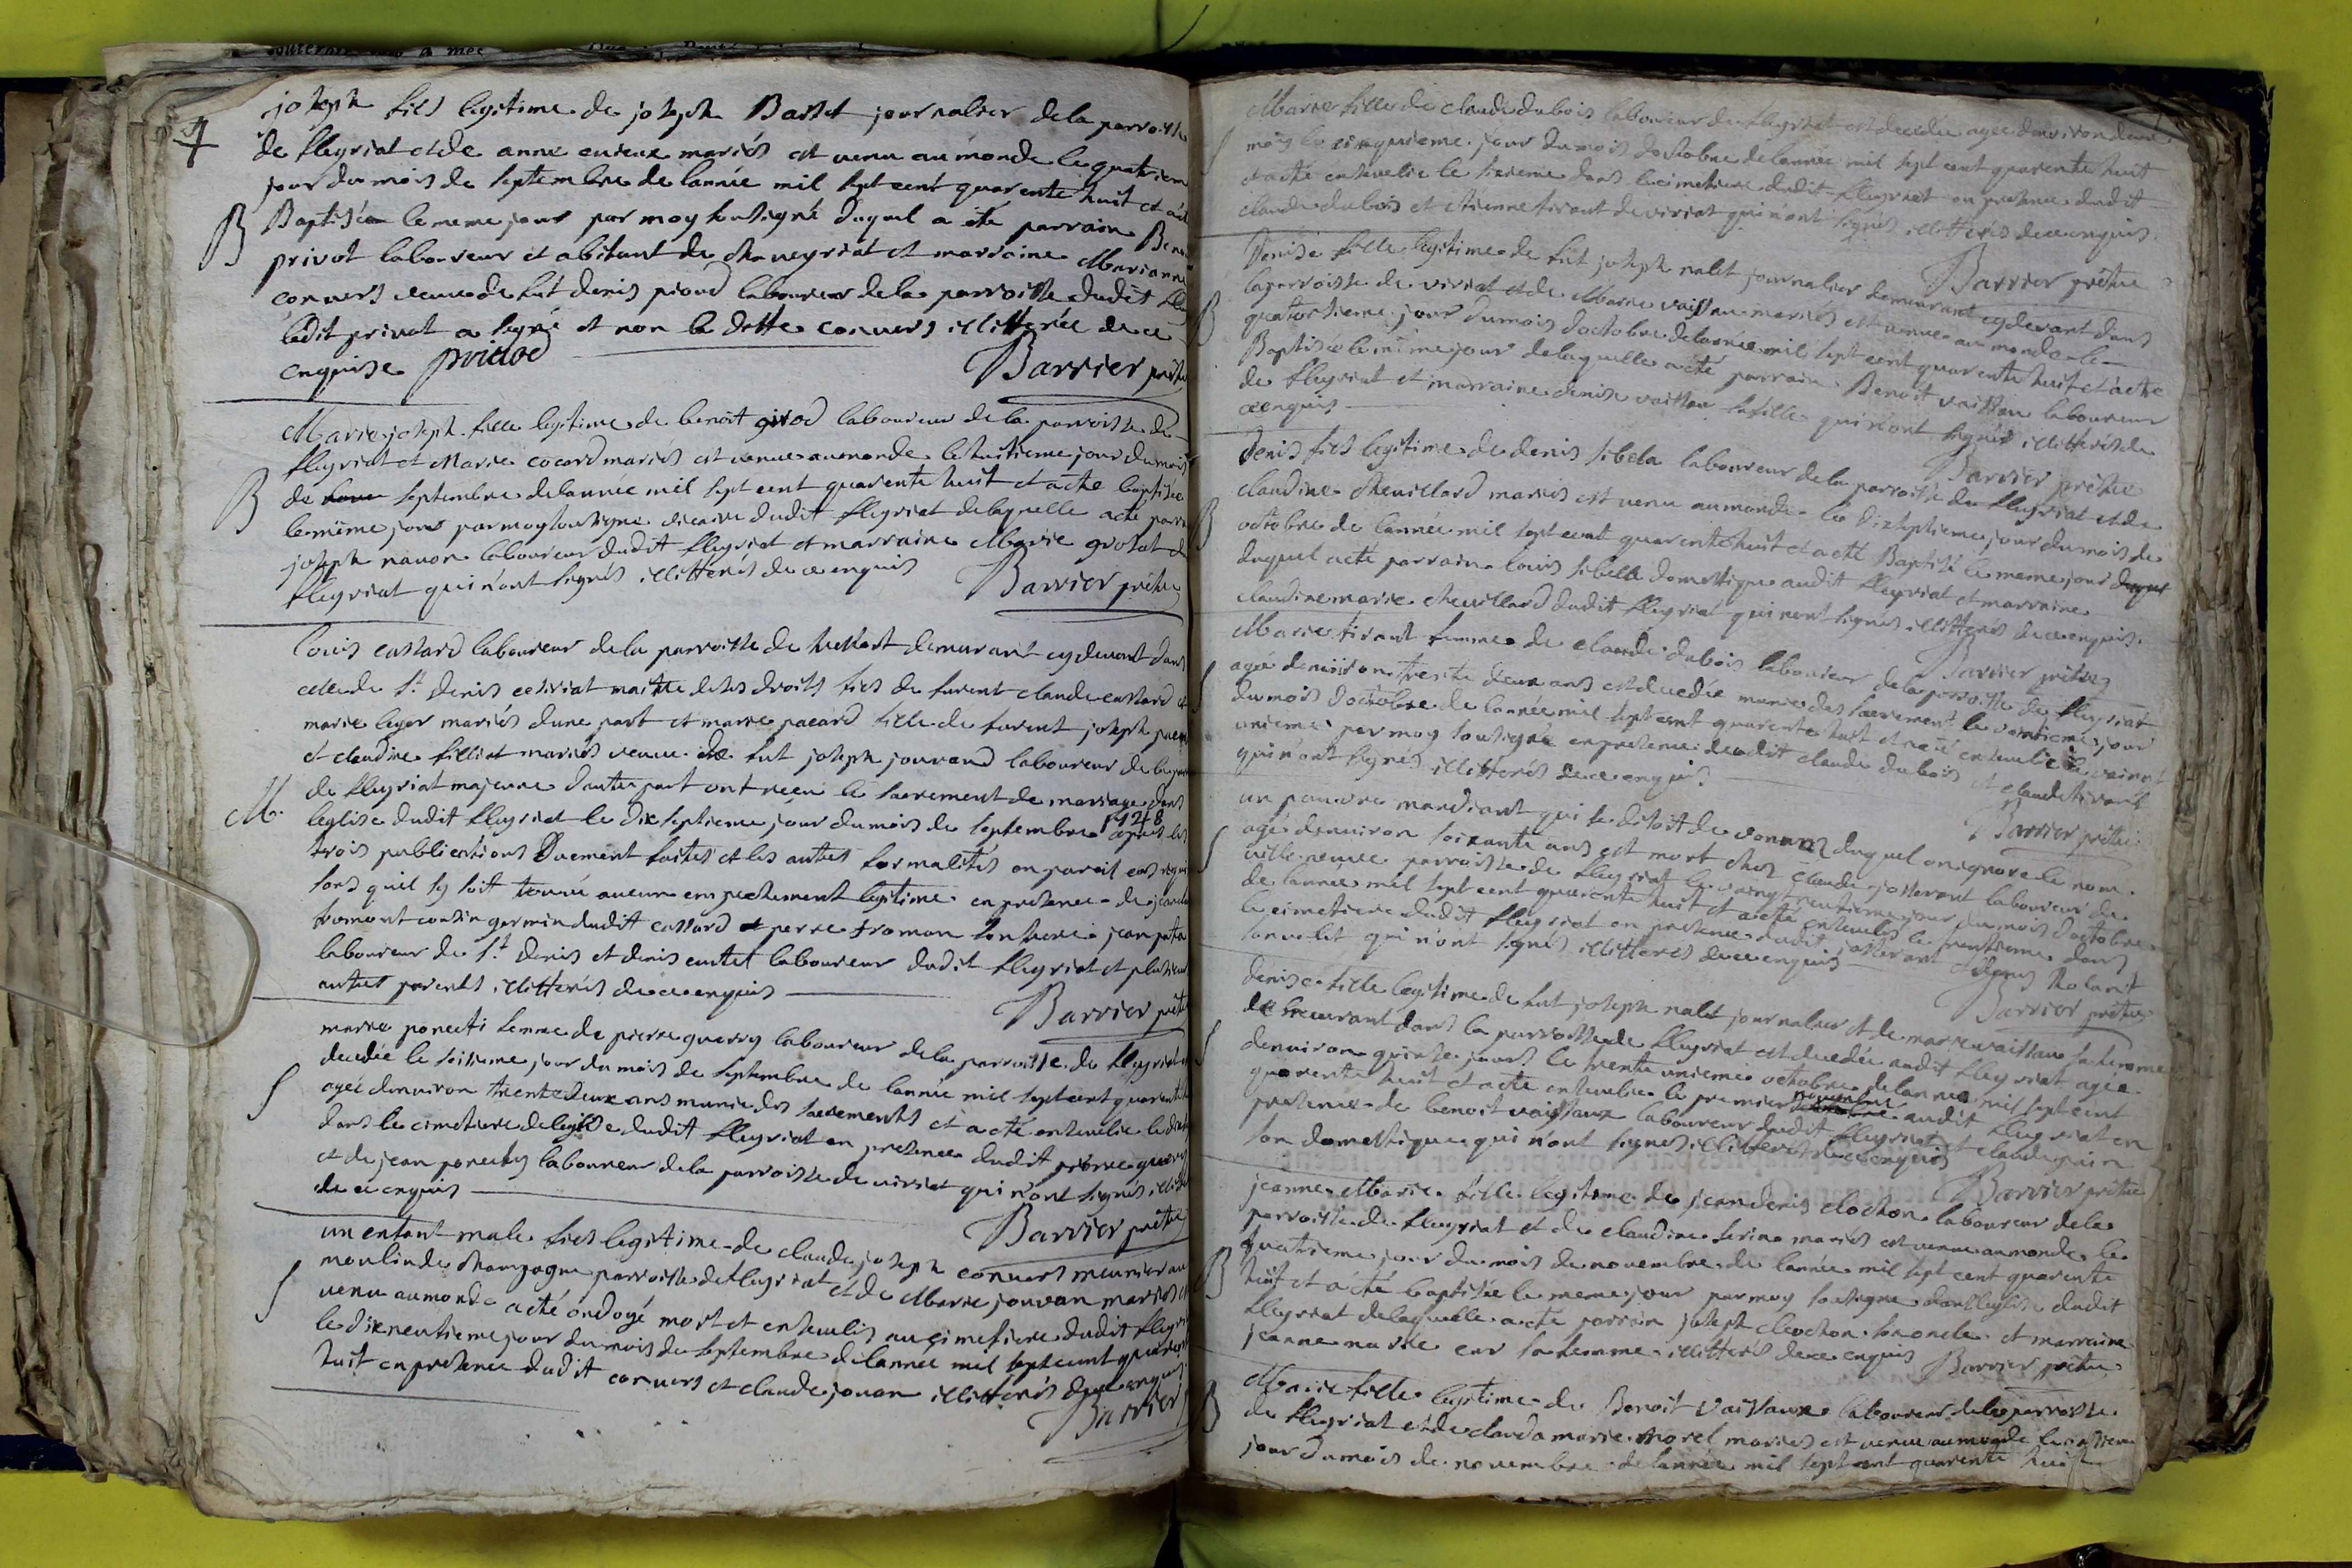 joseph fils legitime de joseph Basset journalier de la parroisse
de fleyriat et de anne curieux mariés est venu au monde le quatrieme
jour du mois de septembre de lannée mil sept cent quarente huit et a été
B
Baptisé le meme jour par moy soussigné duquel a été parrain Benoit
privot laboureur et abitant de cheneyriat et marraine Marianne
convers veuve de fut denis pioud laboureur de la parroisse dudit
ledit privot a signé et non la ditte convers illitterée de ce
enquise privod
Barrier prêtre
Marie joseph fille legitime de benoit girod laboureur de la parroisse de
fleyriat et Marie cocard mariés est venue au monde le huitieme jour du mois
B
de septembre de lannée mil sept cent quarente huit et a été baptisée
le même jour par moy soussigné vicaire dudit fleyriat de laquelle a été parrain
joseph navon laboureur dudit fleyriat et marraine Marie grosat de
fleyriat qui n'ont signés illitterés de ce enquis
Barrier prêtre
louis cussard laboureur de la parroisse de demurant cy devant dans
celle de st denis ceisiriat maitre de ses droits fils de furent claude cussard et
marie leger mariés dune part et marie pacard fille de furent joseph pacard
et claudine filliat mariés veuve de fut joseph jouvand laboureur de la parroisse
M.
de fleyriat majeure dautre part ont receu le sacrement de mariage dans
leglise dudit fleyriat le dix septieme jour du mois de septembre 1748 apres les
trois publications duement faites et les autres formalités en pareil cas requises
sans quil sy soit trouvé aucun empechement legitime en presence de
tromont cousin germin dudit cussard et pierre froman son frere jean
laboureur de st denis et denis cuttet laboureur dudit fleyriat et plusieurs
autres parents illitterés de ce enquis
Barrier prêtre
marie ponceti femme de pierre guerry laboureur de la parroisse de fleyriat
decedée le seisieme jour du mois de septembre de lannée mil sept cent quarente
S
agée denviron trente deux ans munie des sacrements et a été ensevelie
dans le cimetiere de leglise dudit fleyriat en presence dudit pierre guerry
et de jean poncety laboureur de la parroisse de viriat qui n'ont signés
de ce enquis
Barrier prêtre
un enfant male fils legitime de claude joseph convers meunier au
moulin de champagne parroisse de fleyriat et de Marie jouvan mariés
S
venu au monde a été ondoyé mort et ensevelis au cimetiere dudit fleyriat
le dixneutieme jour du mois de septembre de lannée mil sept cent quarente
huit en presence dudit convers et claude jouan illitterés de ce enquis
Barrier
Marie fille de claude dubois laboureur de fleyriat est decedée agée denviron deux
S
mois le cinquieme jour du mois doctobre de lannée mil sept cent quarente huit
et a été ensevelie le sixieme dans le cimetiere dudit fleyriat en presence dudit
claude dubois et etienne tirant de viriat qui n'ont signés illitterés de ce enquis
Barrier prêtre
Denise fille legitime de fut joseph nalet journalier demeurant cy devant dans
B
la parroisse de viriat et de Marie vaissau mariés est venue au monde le
quatorzieme jour du mois doctobre de lannée mil sept cent quarente huit et a été
Baptisée le même jour de laquelle a été parrain Benoit vaissau laboureur
de fleyriat et marraine denise vaissau sa fille qui n'ont signés illitterés de
ce enquis
Barrier prêtre
Denis fils legitime de denis sibela laboureur de la parroisse de fleyriat et de
B
claudine chevillard mariés est venu au monde le dixseptieme jour du mois de
octobre de lannée mil sept cent quarente huit et a été Baptisé le meme jour
duquel a été parrain louis sibella domestique audit fleyriat et marraine
claudine marie chevillard dudit fleyriat qui nont signés illitterés de ce enquis.
Barrier prêtre
Marie tirant femme de claude dubois laboureur de la parroisse de fleyriat
S
agée denviron trente deux ans est decedée munie des sacrement le vintieme jour
du mois doctobre de lannée mil sept cent quarente huit et a été ensevelie le vaint
unieme par moy soussigné en presence dudit claude dubois et claude tirant
qui n'ont signés illitterés de ce enquis
Barrier prêtre
un pauvre mandiant qui se disoit de vonnas duquel on ignore le nom
S
agé denviron soixante ans est mort chez claude josserant laboureur de
ville neuve parroisse de fleyriat le vaingt neutieme jour du mois doctobre
de lannée mil sept cent quarente huit et a été ensevelis le trentieme dans
le cimetiere dudit fleyriat en presence dudit josserant et
son valet qui n'ont signés illitterés de ce enquis
Barrier prêtre
denise fille legitime de fut joseph nalet journalier et de marie vaissau sa femme
demeurant dans la parroisse de fleyriat est decedée audit fleyriat agée
S
denviron quinse jours le trente unieme octobre de lannee mil sept cent
quarente huit et a été ensevelie le premier novembre audit fleyriat en
presence de benoit vaissaux laboureur dudit fleyriat et claude
son domestique qui n'ont signés illitterés de ce enquis
Barrier prêtre
jeanne Marie fille legitime de jean denis clochon laboureur de la
parroisse de fleyriat et de claudine mariés est venue au monde le
B
quatrieme jour du mois de novembre de lannée mil sept cent quarente
huit et a été baptisée le meme jour par moy soussigné dans leglise dudit
fleyriat de laquelle a été parrain joseph clochon son oncle et marraine
jeanne marie sa femme illitterés de ce enquis Barrier prêtre
B
Marie fille legitime de Benoit vaissaux laboureur de la parroisse
de fleyriat et de clauda marie morel mariés est venue au monde le
jour du mois de novembre de lannée mil sept cent quarente huit